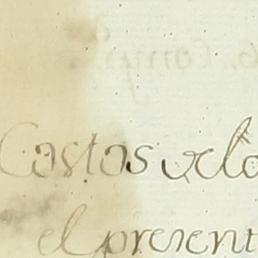 Costos de lo
el present